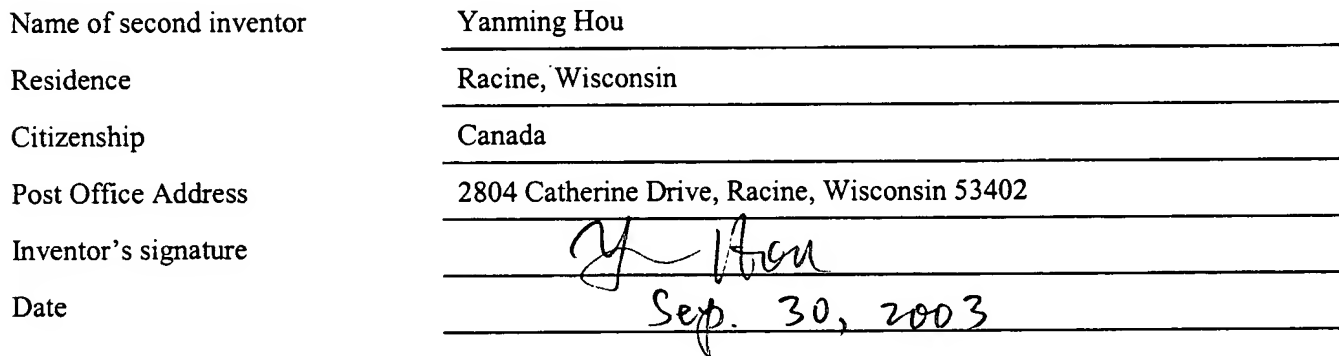 Name of second inventor Yanming Hou
Residence Racine, Wisconsin
Citizenship Canada
Post Office Address 2804 Catherine Drive, Racine, Wisconsin 53402
Inventor's signature Y Hou
Date Sep. 30, 2003